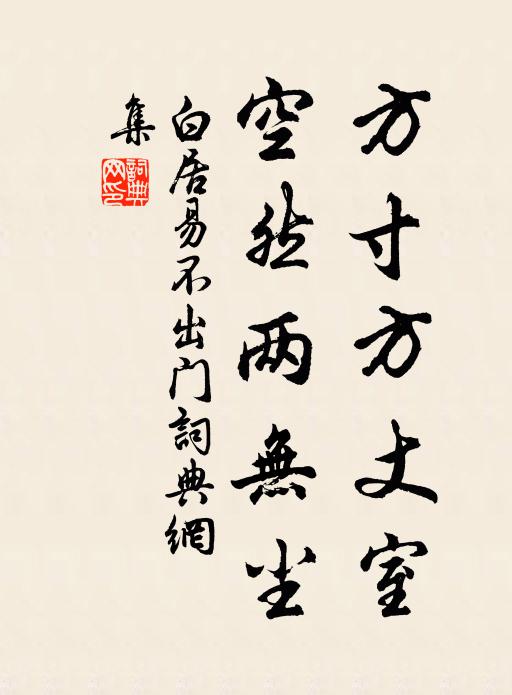 方寸方丈室
空然两無尘
白居易不出门詞典網
集
詞典網印